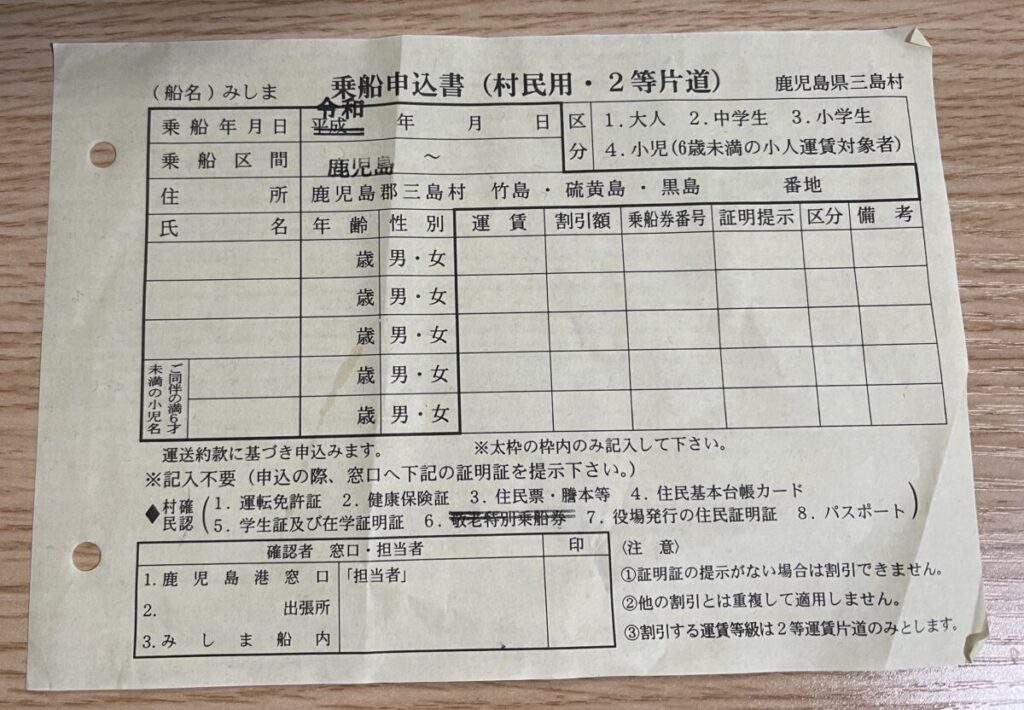 (船名)みしま 乗船申込書(村民用・2等片道) 鹿児島県三島村
令和
乗船年月日 平成 年 月 日
区分 1.大人 2.中学生 3.小学生
4.小児(6歳未満の小人運賃対象者)
乗船区間 鹿児島 ~
住所 鹿児島郡三島村 竹島・硫黄島・黒島 番地
氏名 年齢 性別 運賃 割引額 乗船券番号 証明提示 区分 備考
歳 男・女
歳 男・女
歳 男・女
ご同伴の満6才未満の小児名
歳 男・女
歳 男・女
運送約款に基づき申込みます。 ※太枠の枠内のみ記入して下さい。
※記入不要(申込の際、窓口へ下記の証明証を提示下さい。)
◆村民確認(1.運転免許証 2.健康保険証 3.住民票・謄本等 4.住民基本台帳カード
5.学生証及び在学証明証 6.敬老特別乗船券 7.役場発行の住民証明証 8.パスポート)
確認者 窓口・担当者 印
1.鹿児島港窓口 「担当者」
2. 出張所
3.みしま船内
〈注意〉
①証明証の提示がない場合は割引できません。
②他の割引とは重複して適用しません。
③割引する運賃等級は2等運賃片道のみとします。